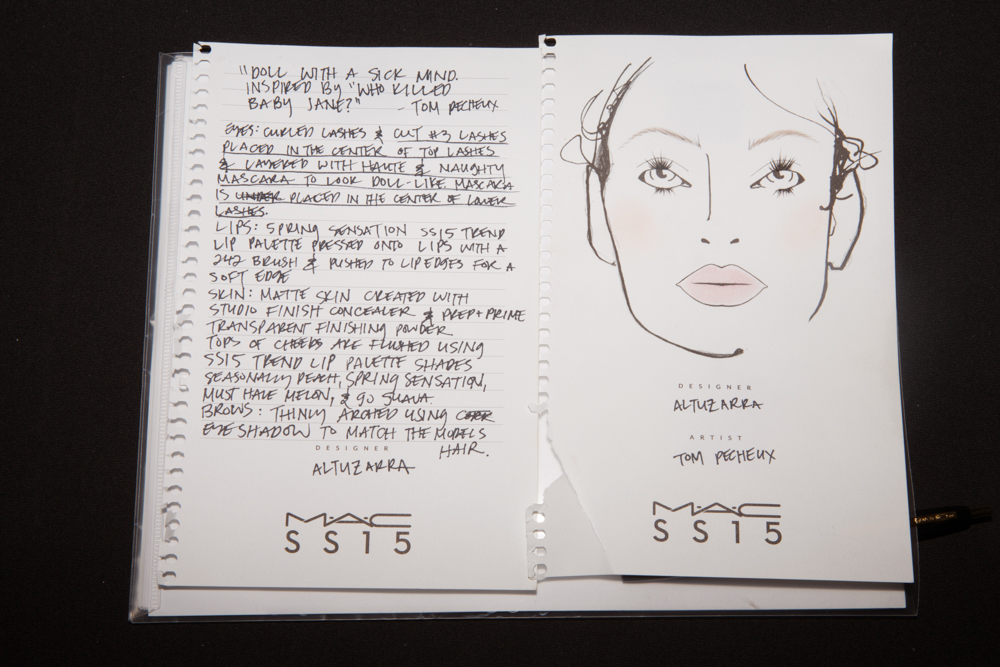 "DOLL WITH A SICK MIND.
INSPIRED BY "WHO KILLED
BABY JANE?" - TOM PECHEUX
EYES: CURLED LASHES & CUT #3 LASHES
PLACED IN THE CENTER OF TOP LASHES
& LAYERED WITH HAUTE & NAUGHTY
MASCARA TO LOOK DOLL-LIKE. MASCARA
IS UNDER PLACED IN THE CENTER OF LOWER
LASHES.
LIPS: SPRING SENSATION SS15 TREND
LIP PALETTE PRESSED ONTO LIPS WITH A
242 BRUSH & PUSHED TO LIP EDGES FOR A
SOFT EDGE
SKIN: MATTE SKIN CREATED WITH
STUDIO FINISH CONCEALER & PREP+PRIME
TRANSPARENT FINISHING POWDER.
TOPS OF CHEEKS ARE FLUSHED USING
SS15 TREND LIP PALETTE SHADES
SEASONALLY PEACH, SPRING SENSATION,
MUST HAVE MELON, & GO GUAVA.
BROWS: THINLY ARCHED USING
EYE SHADOW TO MATCH THE MODELS
HAIR.
DESIGNER
ALTUZARRA
M·A·C
SS15
DESIGNER
ALTUZARRA
ARTIST
TOM PECHEUX
M·A·C
SS15